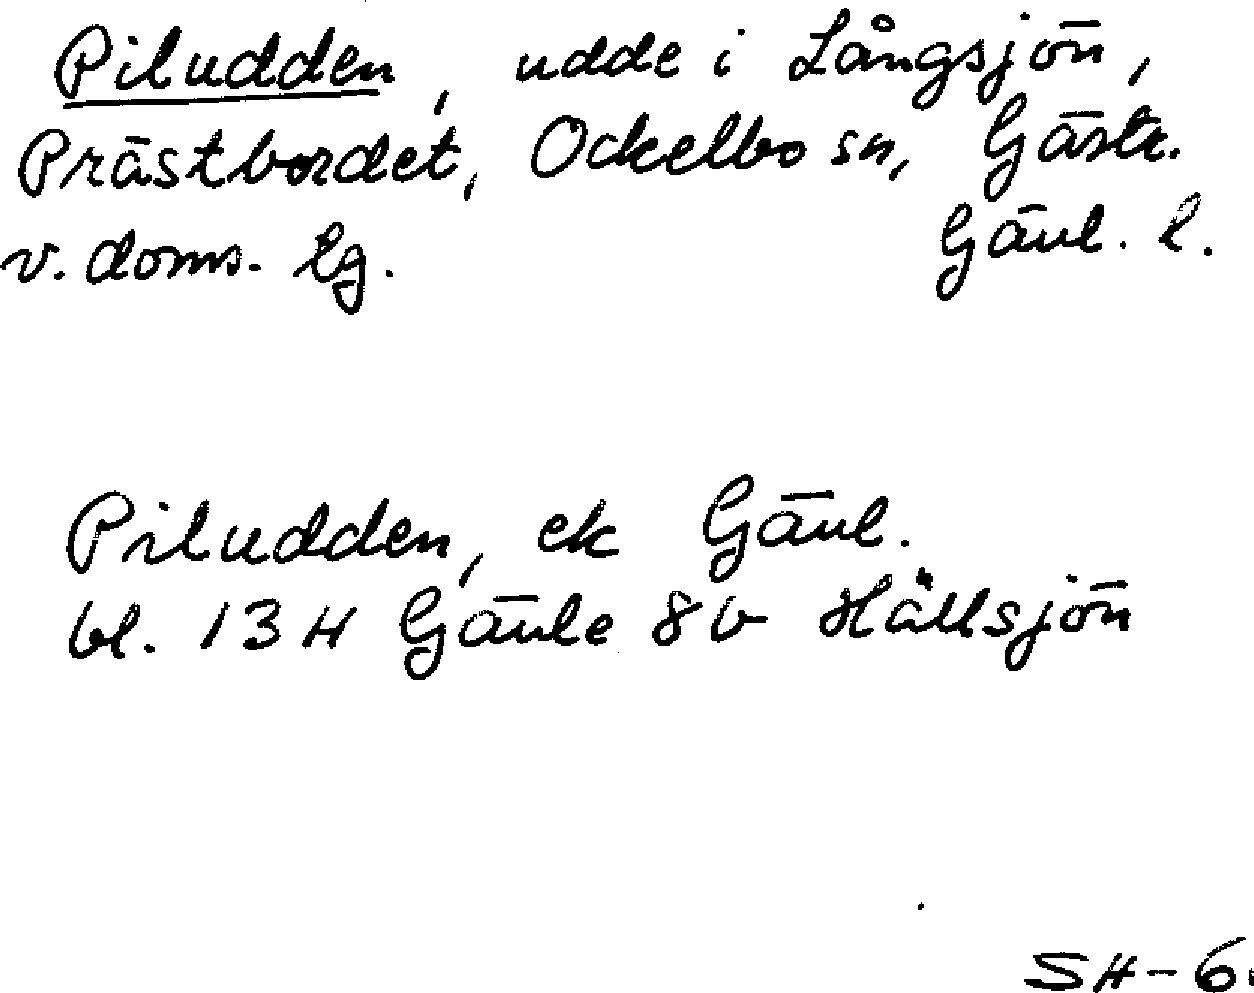 Piludden, udde i Långsjön,
Prästbordet, Ockelbo sn, Gästr.
v. doms. lg. Gävl. l.
Piludden, ek Gävl.
bl. 13 H Gävle 8 b Hällsjön
SH-6